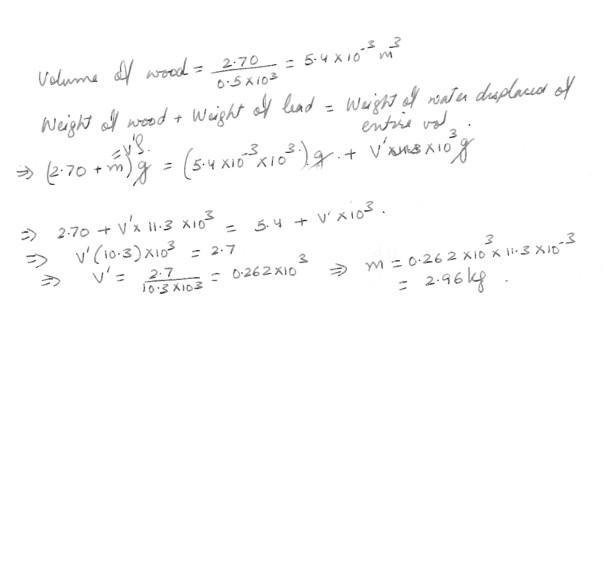 Volume of wood = 2.70 / 0.5 x 10³ = 5.4 x 10⁻³ m³
Weight of wood + Weight of lead = Weight of water displaced of entire vol.
=V'ρ.
⇒ (2.70 + m)g = (5.4 x10⁻³ x10³.)g. + V' x10³ g
⇒ 2.70 + V' x 11.3 x10³ = 5.4 + V' x10³.
⇒ V'(10.3) x10³ = 2.7
⇒ V' = 2.7 / 10.3 x10³ = 0.262 x10³ ⇒ m = 0.262 x10³ x 11.3 x10⁻³
= 2.96 kg.